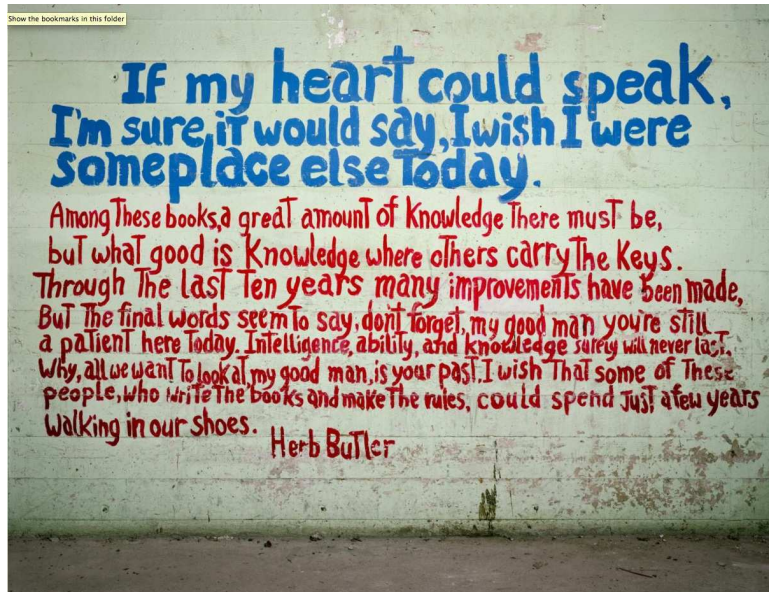 Show the bookmarks in this folder
If my heart could speak,
I'm sure, it would say, I wish I were
someplace else Today.
Among These books, a great amount of Knowledge There must be,
but what good is Knowledge where others carry The Keys.
Through The last Ten years many improvements have been made,
But The final words seem To say, don't forget, my good man you're still
a patient here Today. Intelligence, ability, and knowledge surely will never last,
Why, all we want To look at, my good man, is your past. I wish That some of These
people, who write The books and make The rules, could spend Just a few years
Walking in our shoes.
Herb Butler